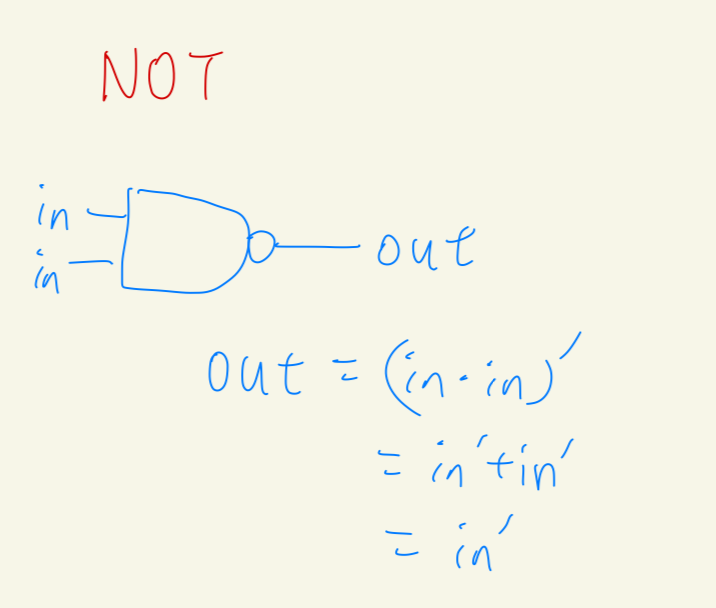 NOT
in
in
out
out = (in·in)'
= in'+in'
= in'